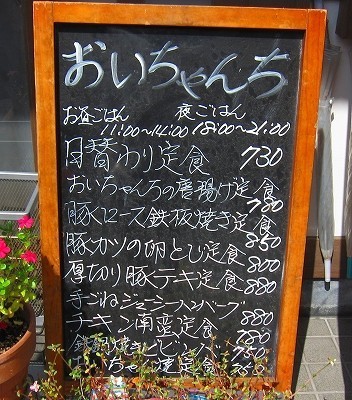 おいちゃんち
お昼ごはん 夜ごはん
11:00～14:00 18:00～21:00
日替わり定食 730
おいちゃんちの唐揚げ定食 780
豚ロース鉄板焼き定食 850
豚カツの卵とじ定食 800
厚切り豚テキ定食 880
手ごねジューシーハンバーグ 880
チキン南蛮定食
鉄板焼きビビンバ 750
定食